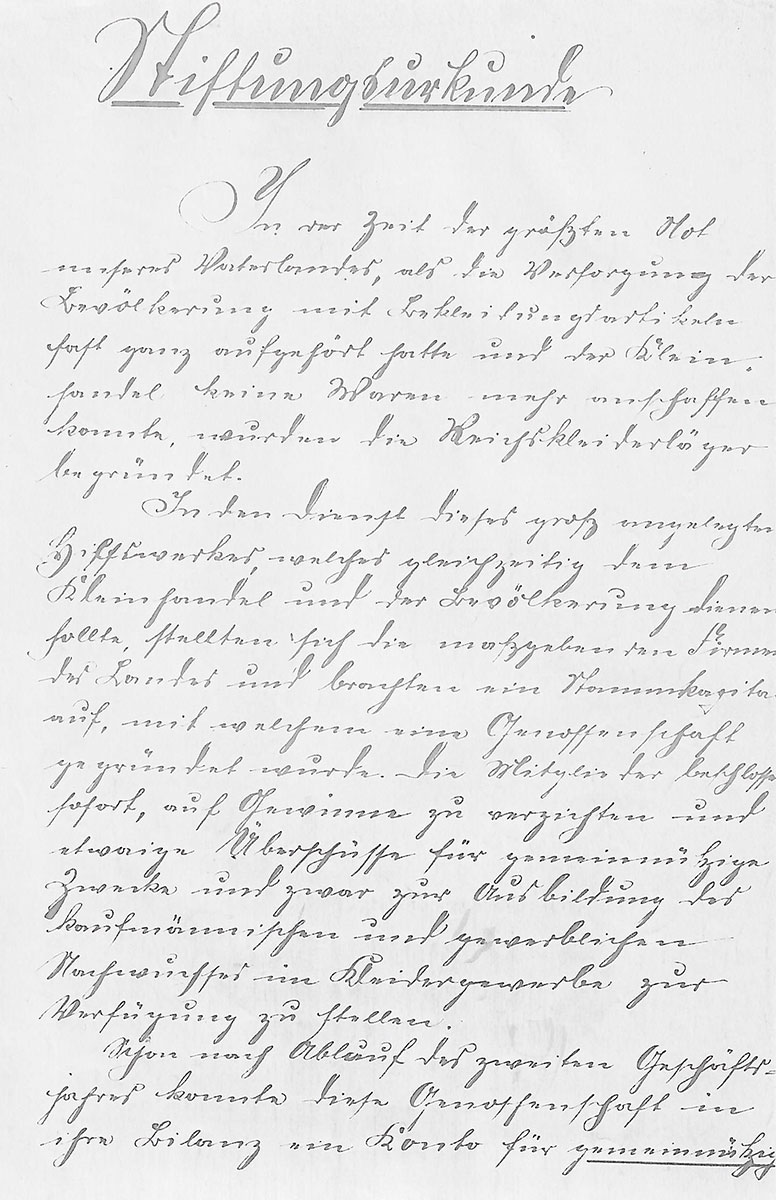 Stiftungsurkunde
In der Zeit der größten Not
unseres Vaterlandes, als die Versorgung der
Bevölkerung mit Bekleidungsartikeln
fast ganz aufgehört hatte und der Klein-
handel keine Waren mehr anschaffen
konnte, wurden die Reichskleiderläger
begründet.
In den Dienst dieses groß angelegten
Hilfswerkes, welches gleichzeitig dem
Kleinhandel und der Bevölkerung dienen
sollte, stellten sich die maßgebenden Firmen
des Landes und brachten ein Stammkapita
auf, mit welchem eine Genossenschaft
gegründet wurde. Die Mitglieder beschlosse
sofort, auf Gewinne zu verzichten und
etwaige Überschüsse für gemeinnützige
Zwecke und zwar zur Ausbildung des
kaufmännischen und gewerblichen
Nachwuchses im Kleidergewerbe zur
Verfügung zu stellen.
Schon nach Ablauf des zweiten Geschäfts=
jahres konnte diese Genossenschaft in
ihre Bilanz ein Konto für gemeinnützig